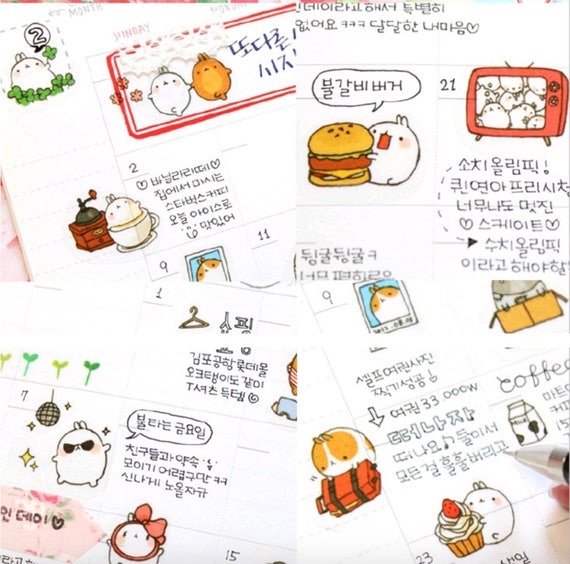 MONTH
SUNDAY
2
또다른
시작
2
♡ 바닐라라떼 ♡
집에서 마시는
스타벅스커피
오늘 아이스로
맛있어
9
11
인데이라고 해서 특별히
없어요 ㅋㅋㅋ 달달한 내마음♡
불갈비버거
21
소치 올림픽!
퀸연아 프리시청
너무나도 멋진
♡ 스케이트 ♡
▶ 수치올림픽
이라고 해야할
뒹굴뒹굴ㅋ
너무 편하로운
1
쇼핑
김포공항 롯데몰
오크탱이도 같이
T셔츠 득템
7
불타는 금요일
친구들과 약속
모이기 어렵구만 ㅋㅋ
신나게 노올자규
인 데이 ♡
15
9
셀프여권사진
찍기성공!
↓ 여권33,000w
떠나자
떠나요♪ 둘이서
모든걸 훌훌버리고
coffee
마트
커피
23
생일